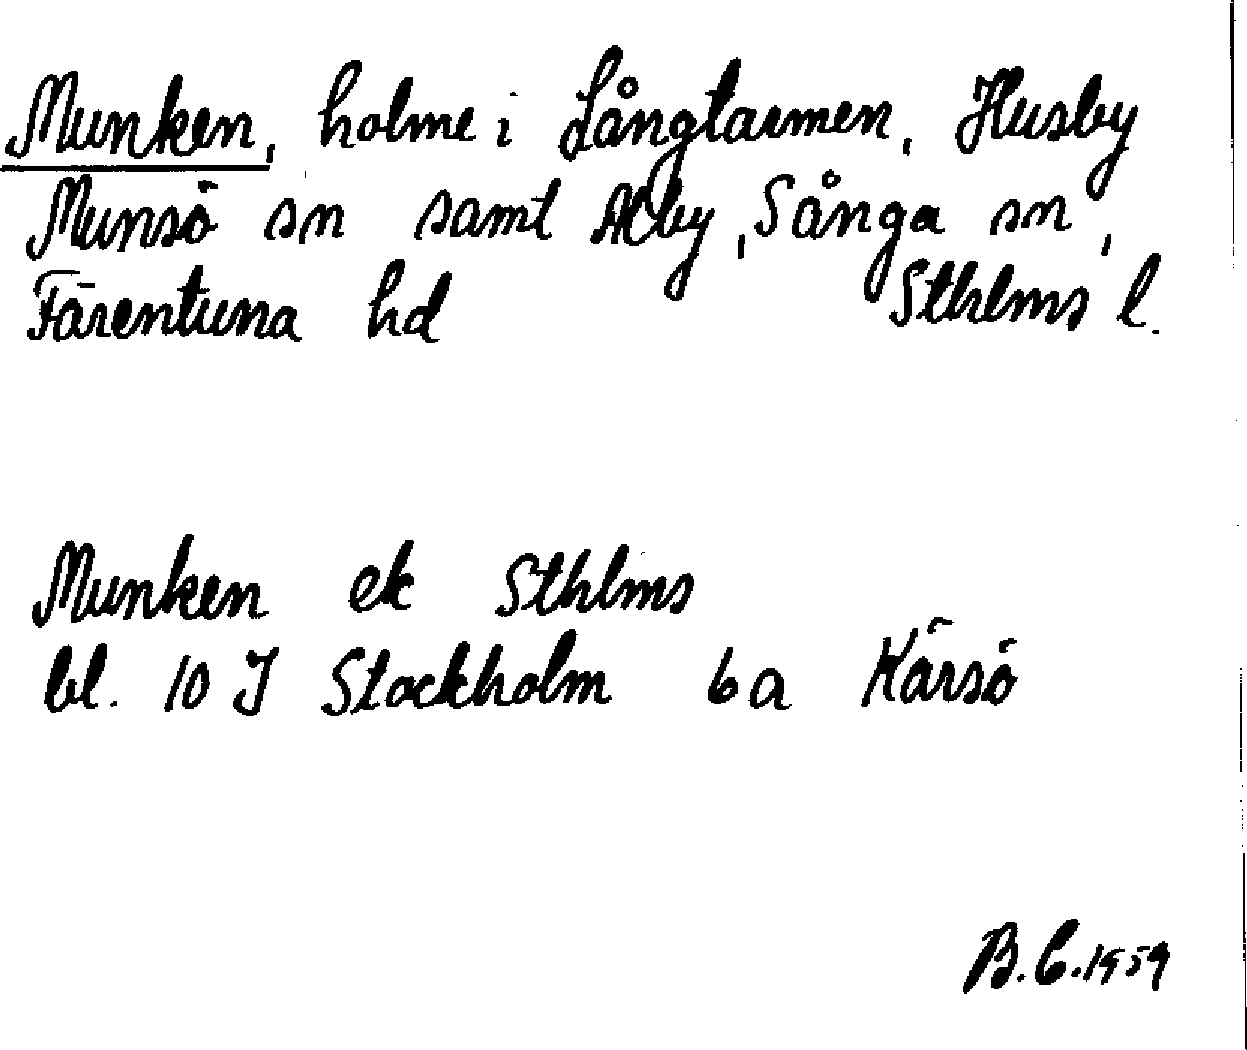 Munken, holme i Långtarmen, Husby
Munsö sn samt Alby, Sånga sn,
Färentuna hd Sthlms l.
Munken ek Sthlms
bl. 10 J Stockholm 6a Kärsö
B.C. 1959